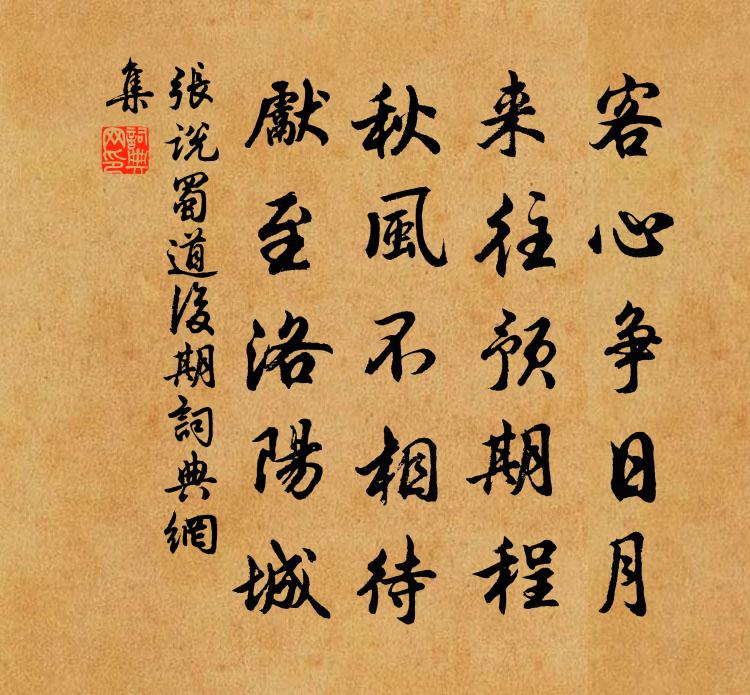 客心争日月
来往预期程
秋風不相待
獻至洛陽城
張說蜀道後期詞典網
集
詞典
网印